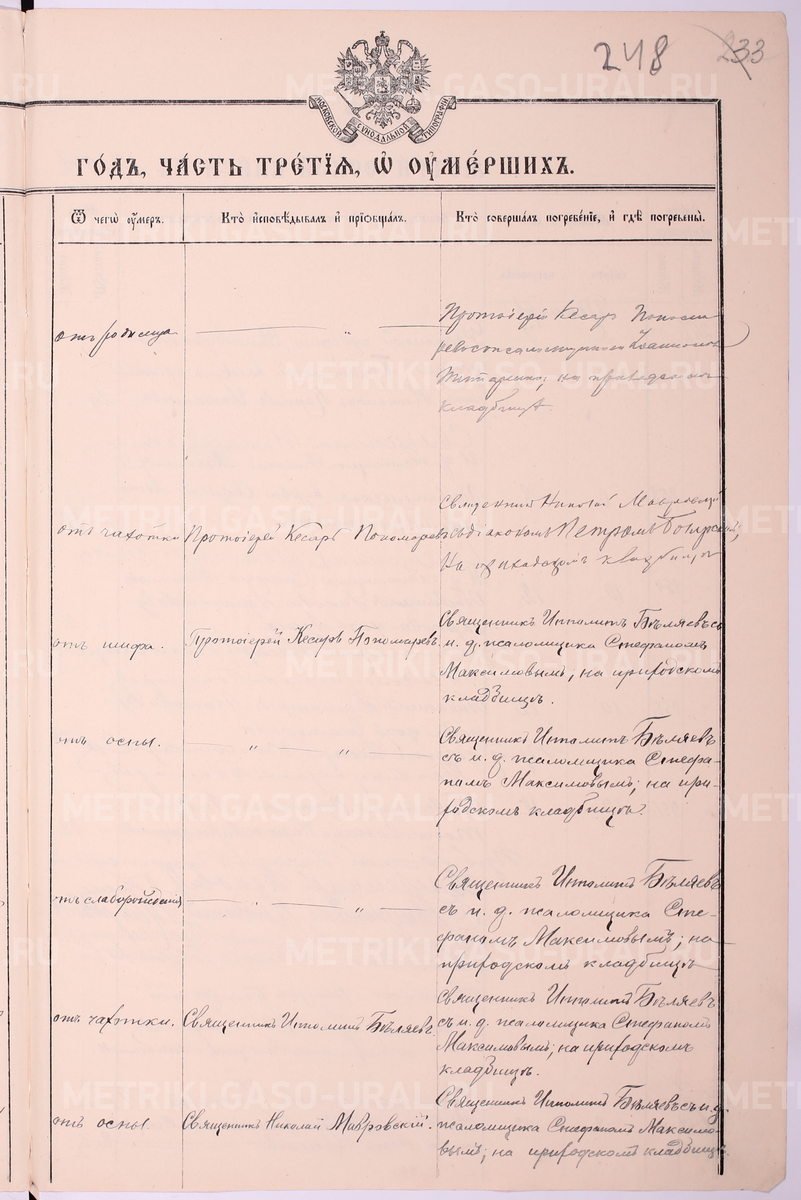 248
233
МОСКОВСКОЙ СѴНОДАЛЬНОЙ ТИПОГРАФІИ
ГО́ДЪ, ЧА́СТЬ ТРЕ́ТІѦ, Ѡ҆ ОУ҆МЕ́РШИХЪ.
Ѿ чегѡ̀ оу҆́меръ.
Кто̀ и҆сповѣ́дывалъ и҆ прїѡбща́лъ.
Кто̀ соверша́лъ погребе́нїе, и҆ гдѣ̀ погребены̀.
отъ родимца
— „ —
Протоіерей Кесарь Пономаревъ
съ псаломщикомъ
на приходскомъ
кладбищѣ.
отъ чахотки
Протоіерей Кесарь Пономаревъ
Священникъ Николай Мавровскій
съ діакономъ Петромъ
На приходскомъ кладбищѣ
отъ тифа.
Протоіерей Кесарь Пономаревъ.
Священникъ Ипполитъ Бѣляевъ съ
и. д. псаломщика Стефаномъ
Максимовымъ; на приходскомъ
кладбищѣ.
отъ оспы.
„ — „ —
Священникъ Ипполитъ Бѣляевъ
съ и. д. псаломщика Стефа-
номъ Максимовымъ; на при-
ходскомъ кладбищѣ.
отъ слаборожденія
— „ — „ —
Священникъ Ипполитъ Бѣляевъ
съ и. д. псаломщика Сте-
фаномъ Максимовымъ; на
приходскомъ кладбищѣ
отъ чахотки.
Священникъ Ипполитъ Бѣляевъ
Священникъ Ипполитъ Бѣляевъ
съ и. д. псаломщика Стефаномъ
Максимовымъ; на приходскомъ
кладбищѣ.
отъ оспы
Священникъ Николай Мавровскій.
Священникъ Ипполитъ Бѣляевъ съ и. д.
псаломщика Стефаномъ Максимо-
вымъ; на приходскомъ кладбищѣ.
METRIKI.GASO-URAL.RU